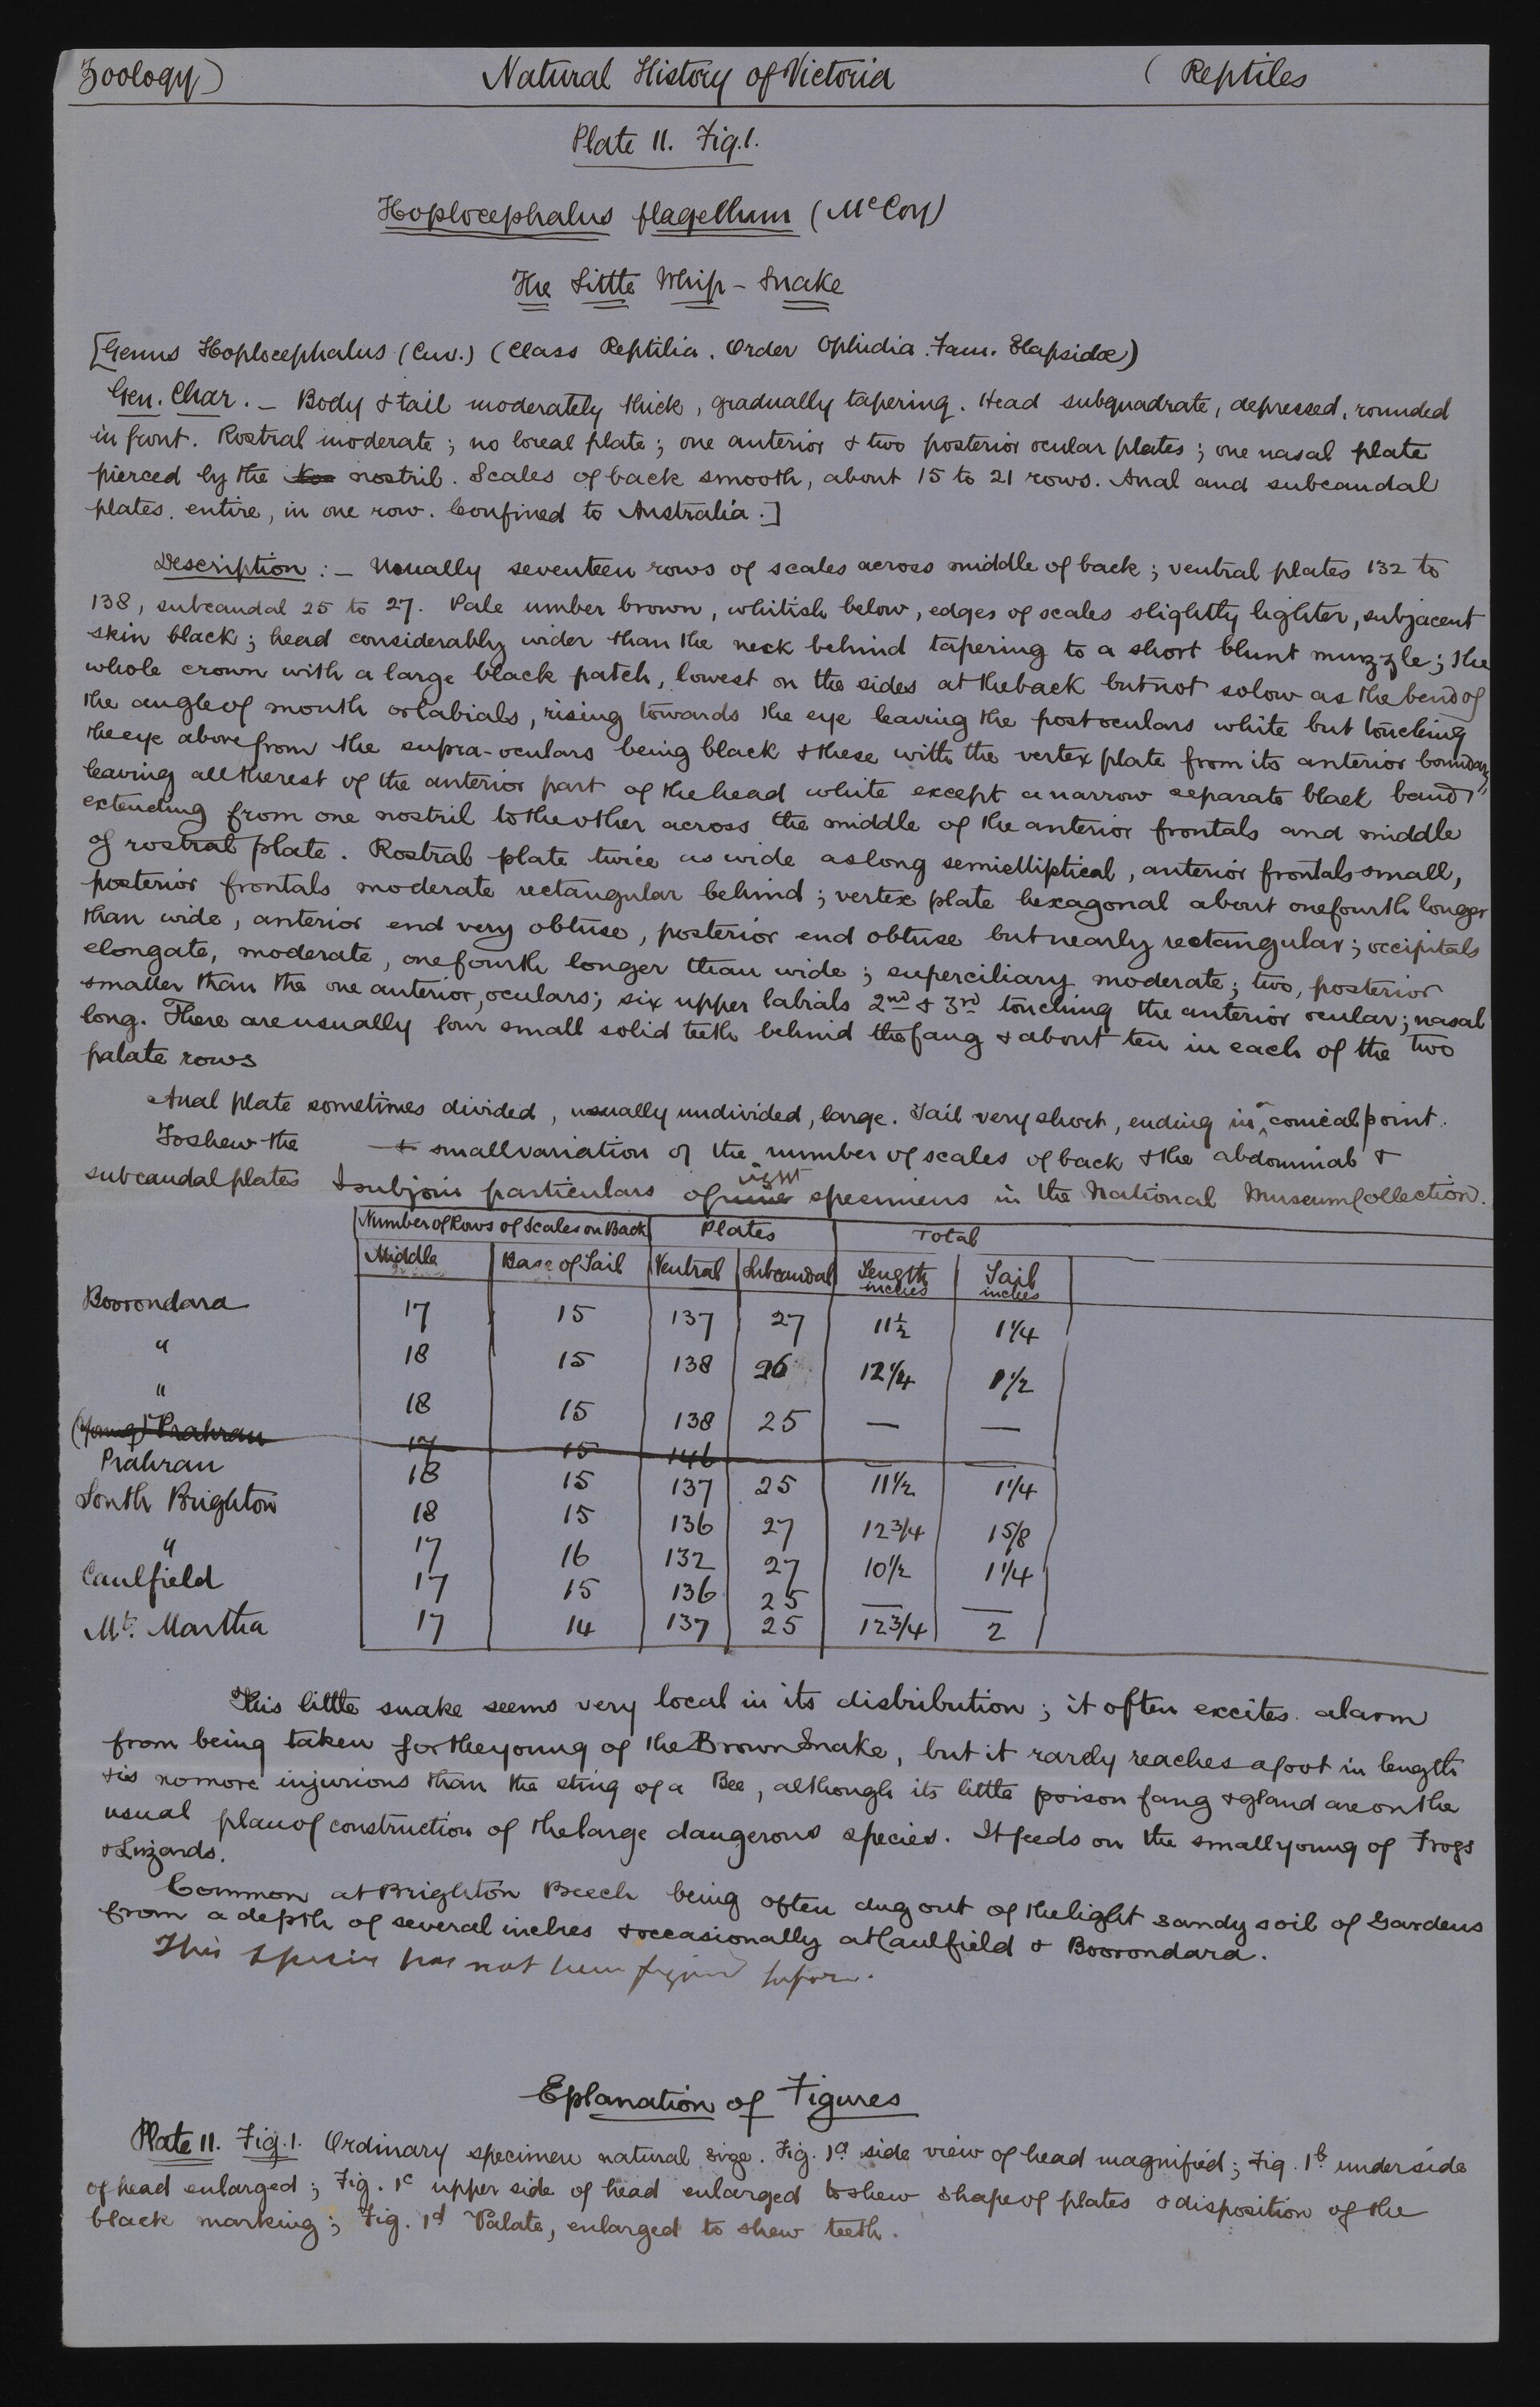 Zoology) Natural History of Victoria ( Reptiles
Plate 11. Fig. 1.
Hoplocephalus flagellum (McCoy)
The Little Whip - Snake
[Genus Hoplocephalus (Cuv.) (Class Reptilia. Order Ophidia. Fam. Elapsidæ)
Gen. Char. — Body & tail moderately thick, gradually tapering. Head subquadrate, depressed, rounded
in front. Rostral moderate; no loreal plate; one anterior & two posterior ocular plates; one nasal plate
pierced by the nostril. Scales of back smooth, about 15 to 21 rows. Anal and subcaudal
plates. entire, in one row. Confined to Australia.]
Description: — Usually seventeen rows of scales across middle of back; ventral plates 132 to
138, subcaudal 25 to 27. Pale umber brown, whitish below, edges of scales slightly lighter, subjacent
skin black; head considerably wider than the neck behind tapering to a short blunt muzzle; the
whole crown with a large black patch, lowest on the sides at the back but not so low as the bend of
the angle of mouth or labials, rising towards the eye leaving the postoculars white but touching
the eye above from the supra-oculars being black & these with the vertex plate from its anterior boundary
leaving all the rest of the anterior part of the head white except a narrow separate black band
extending from one nostril to the other across the middle of the anterior frontals and middle
of rostral plate. Rostral plate twice as wide as long semielliptical, anterior frontals small,
posterior frontals moderate rectangular behind; vertex plate hexagonal about one fourth longer
than wide, anterior end very obtuse, posterior end obtuse but nearly rectangular; occipitals
elongate, moderate, one fourth longer than wide; superciliary moderate; two, posterior
smaller than the one anterior, oculars; six upper labials 2nd & 3rd touching the anterior ocular; nasal
long. There are usually four small solid teeth behind the fang & about ten in each of the two
palate rows
Anal plate sometimes divided, usually undivided, large. Tail very short, ending in a conical point.
To shew the small variation of the number of scales of back & the abdominal &
subcaudal plates I subjoin particulars of nine eight specimens in the National Museum Collection.
Number of Rows of Scales on Back Plates Total
Middle Base of Tail Ventral Subcaudal Length inches Tail inches
Boorondara 17 15 137 27 11½ 1¼
" 18 15 138 26 12¼ 1½
" 18 15 138 25 — —
(Young) Prahran 17 15 146 — —
Prahran 18 15 137 25 11½ 1¼
South Brighton 18 15 136 27 12¾ 1⅝
" 17 16 132 27 10½ 1¼
Caulfield 17 15 136 25 — —
Mt. Martha 17 14 137 25 12¾ 2
This little snake seems very local in its distribution; it often excites alarm
from being taken for the young of the Brown Snake, but it rarely reaches a foot in length
& is no more injurious than the sting of a Bee, although its little poison fang & gland are on the
usual plan of construction of the large dangerous species. It feeds on the small young of Frogs
& Lizards.
Common at Brighton Beech being often dug out of the light sandy soil of Gardens
from a depth of several inches & occasionally at Caulfield & Boorondara.
This species has not been figured before.
Eplanation of Figures
Plate 11. Fig. 1. Ordinary specimen natural size. Fig. 1a side view of head magnified; Fig. 1b underside
of head enlarged; Fig. 1c upper side of head enlarged to shew shape of plates & disposition of the
black marking; Fig. 1d Palate, enlarged to shew teeth.